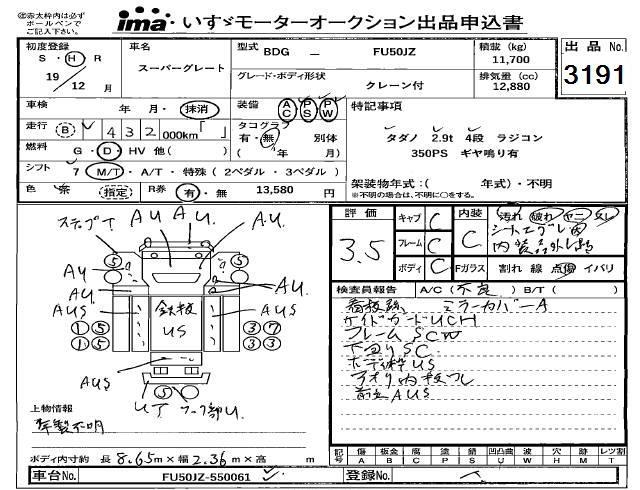 ㊟赤太枠内は必ず
ボールペンで
ご記入下さい。
ima いすゞモーターオークション出品申込書
初度登録
S・H・R
19/12月
車名
スーパーグレート
型式 BDG － FU50JZ
グレード・ボディ形状
クレーン付
積載 (kg)
11,700
排気量 (cc)
12,880
出品 No.
3191
車検 年 月・抹消
走行 B 432 000km「 」
燃料 G・D・HV 他( )
シフト 7 M/T・A/T・特殊(2ペダル・3ペダル)
色 茶 指定 R券 有・無 13,580 円
装備 AC PS PW
タコグラフ
有・無 別体
( 年 月)
特記事項
タダノ 2.9t 4段 ラジコン
350PS ギヤ鳴り有
架装物年式:( 年式)・不明
※不明の場合は、不明に○をする。
評価
3.5
キャブ C
フレーム C
ボディ C
内装 C
汚れ 破れ ヤニ
内装部外し跡
Fガラス 割れ 線 点傷 イバリ
検査員報告 A/C(不良) B/T( )
看板跡 ミラーカバーA
サイドガードUCH
フレームSCW
下回りSC
ボディ枠US
アオリ内
AUS
ステップT AU A U. A.U.
AU
AU AU
AUS 鉄板 US AUS
5 5
1 5 3 7
1 5 3 3
AUS
5
UT フック部U.
上物情報
年製不明
ボディ内寸約 長 8.65m×幅 2.36m×高 m
記号 傷 板金 腐 塗 錆 凹凸曲 波 穴 跡 レツ割
A B C P S U W H M T
車台No. FU50JZ-550061
登録No.